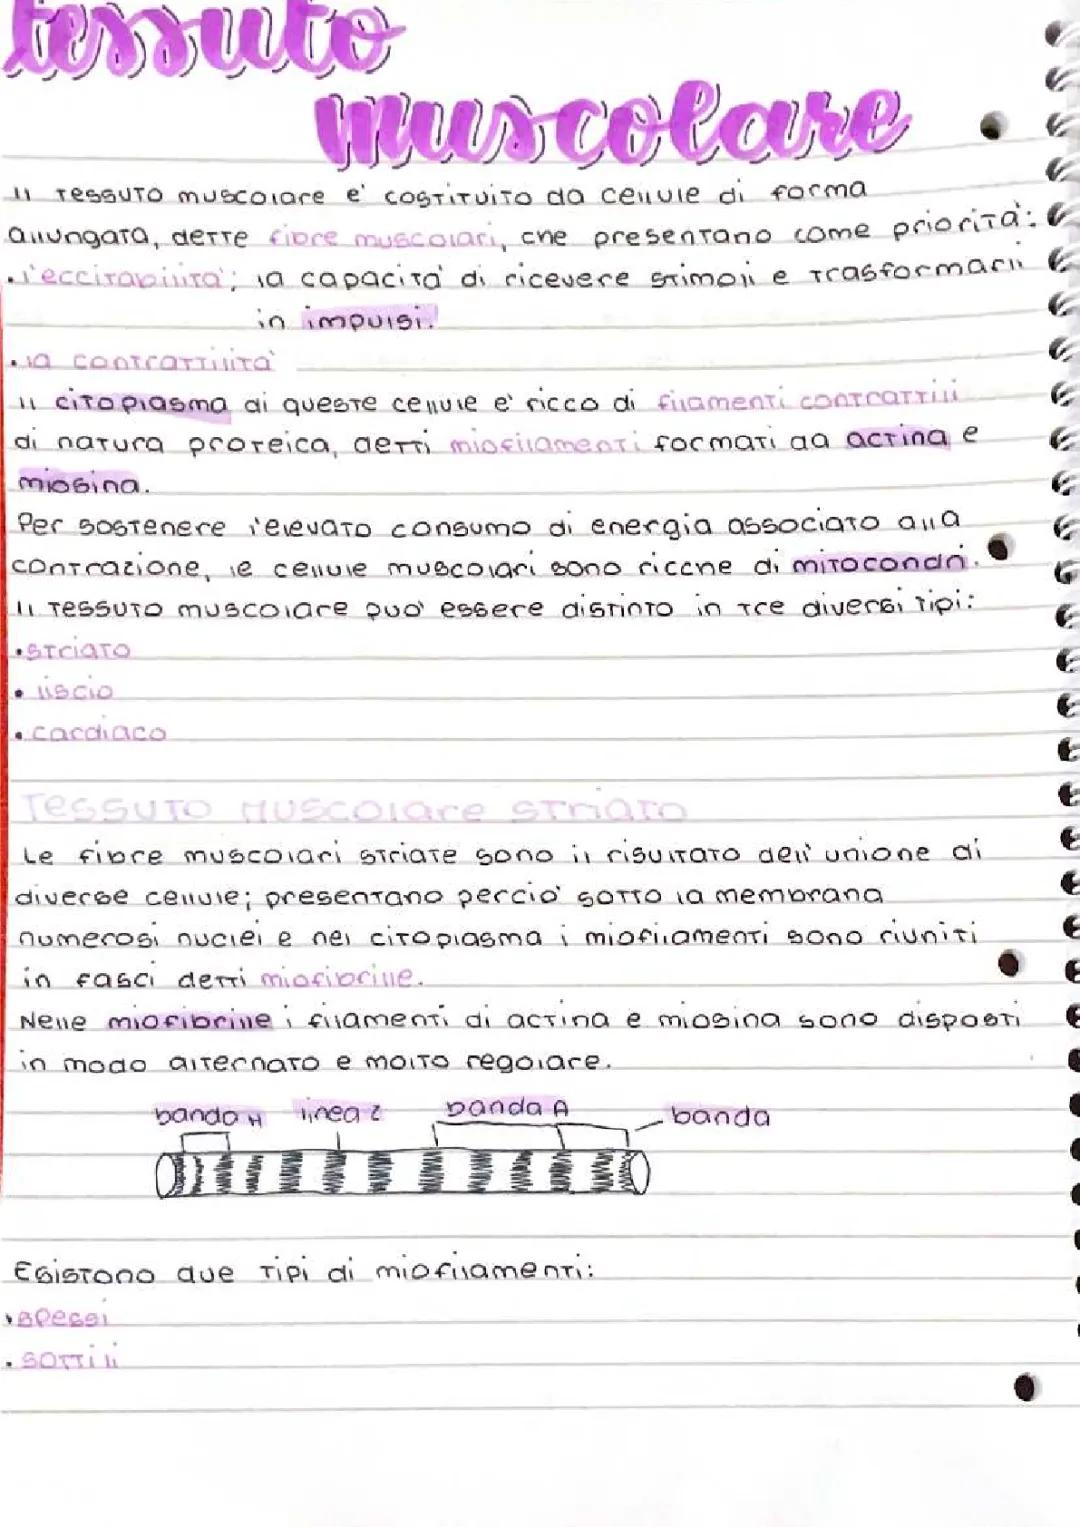 tessuto
muscolare
Il tessuto muscolare e' costituito da cellule di forma
allungata, dette fibre muscolari, che presentano come priorità:
• l'eccitabilità; la capacità di ricevere stimoli e trasformarli
in impulsi.
• la contrattilità
Il citoplasma di queste cellule e' ricco di filamenti contrattili
di natura proteica, detti miofilamenti formati da actina e
miosina.
Per sostenere l'elevato consumo di energia associato alla
contrazione, le cellule muscolari sono ricche di mitocondri.
Il tessuto muscolare puo' essere distinto in tre diversi tipi:
• striato
• liscio
• cardiaco
Tessuto Muscolare striato
Le fibre muscolari striate sono il risultato dell'unione di
diverse cellule; presentano percio' sotto la membrana
numerosi nuclei e nel citoplasma i miofilamenti sono riuniti
in fasci detti miofibrille.
Nelle miofibrille i filamenti di actina e miosina sono disposti
in modo alternato e molto regolare.
banda H linea Z banda A banda
Esistono due tipi di miofilamenti:
• spessi
• sottili